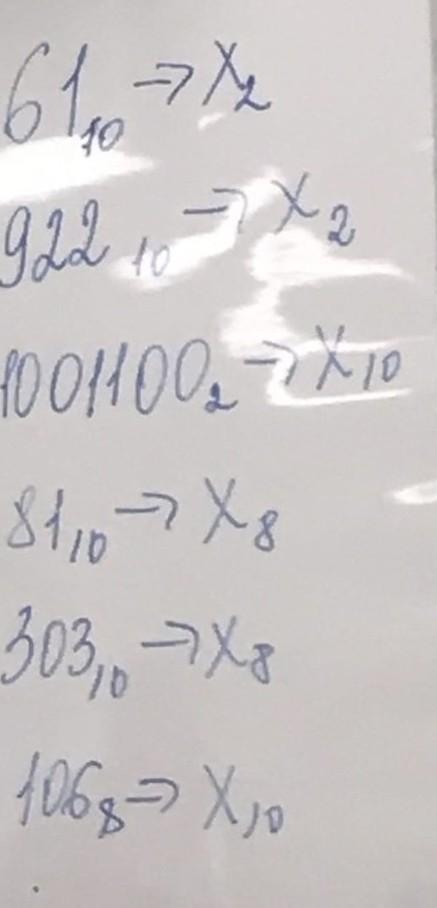 61₁₀ → X₂
922₁₀ → X₂
1001100₂ → X₁₀
81₁₀ → X₈
303₁₀ → X₈
106₈ → X₁₀